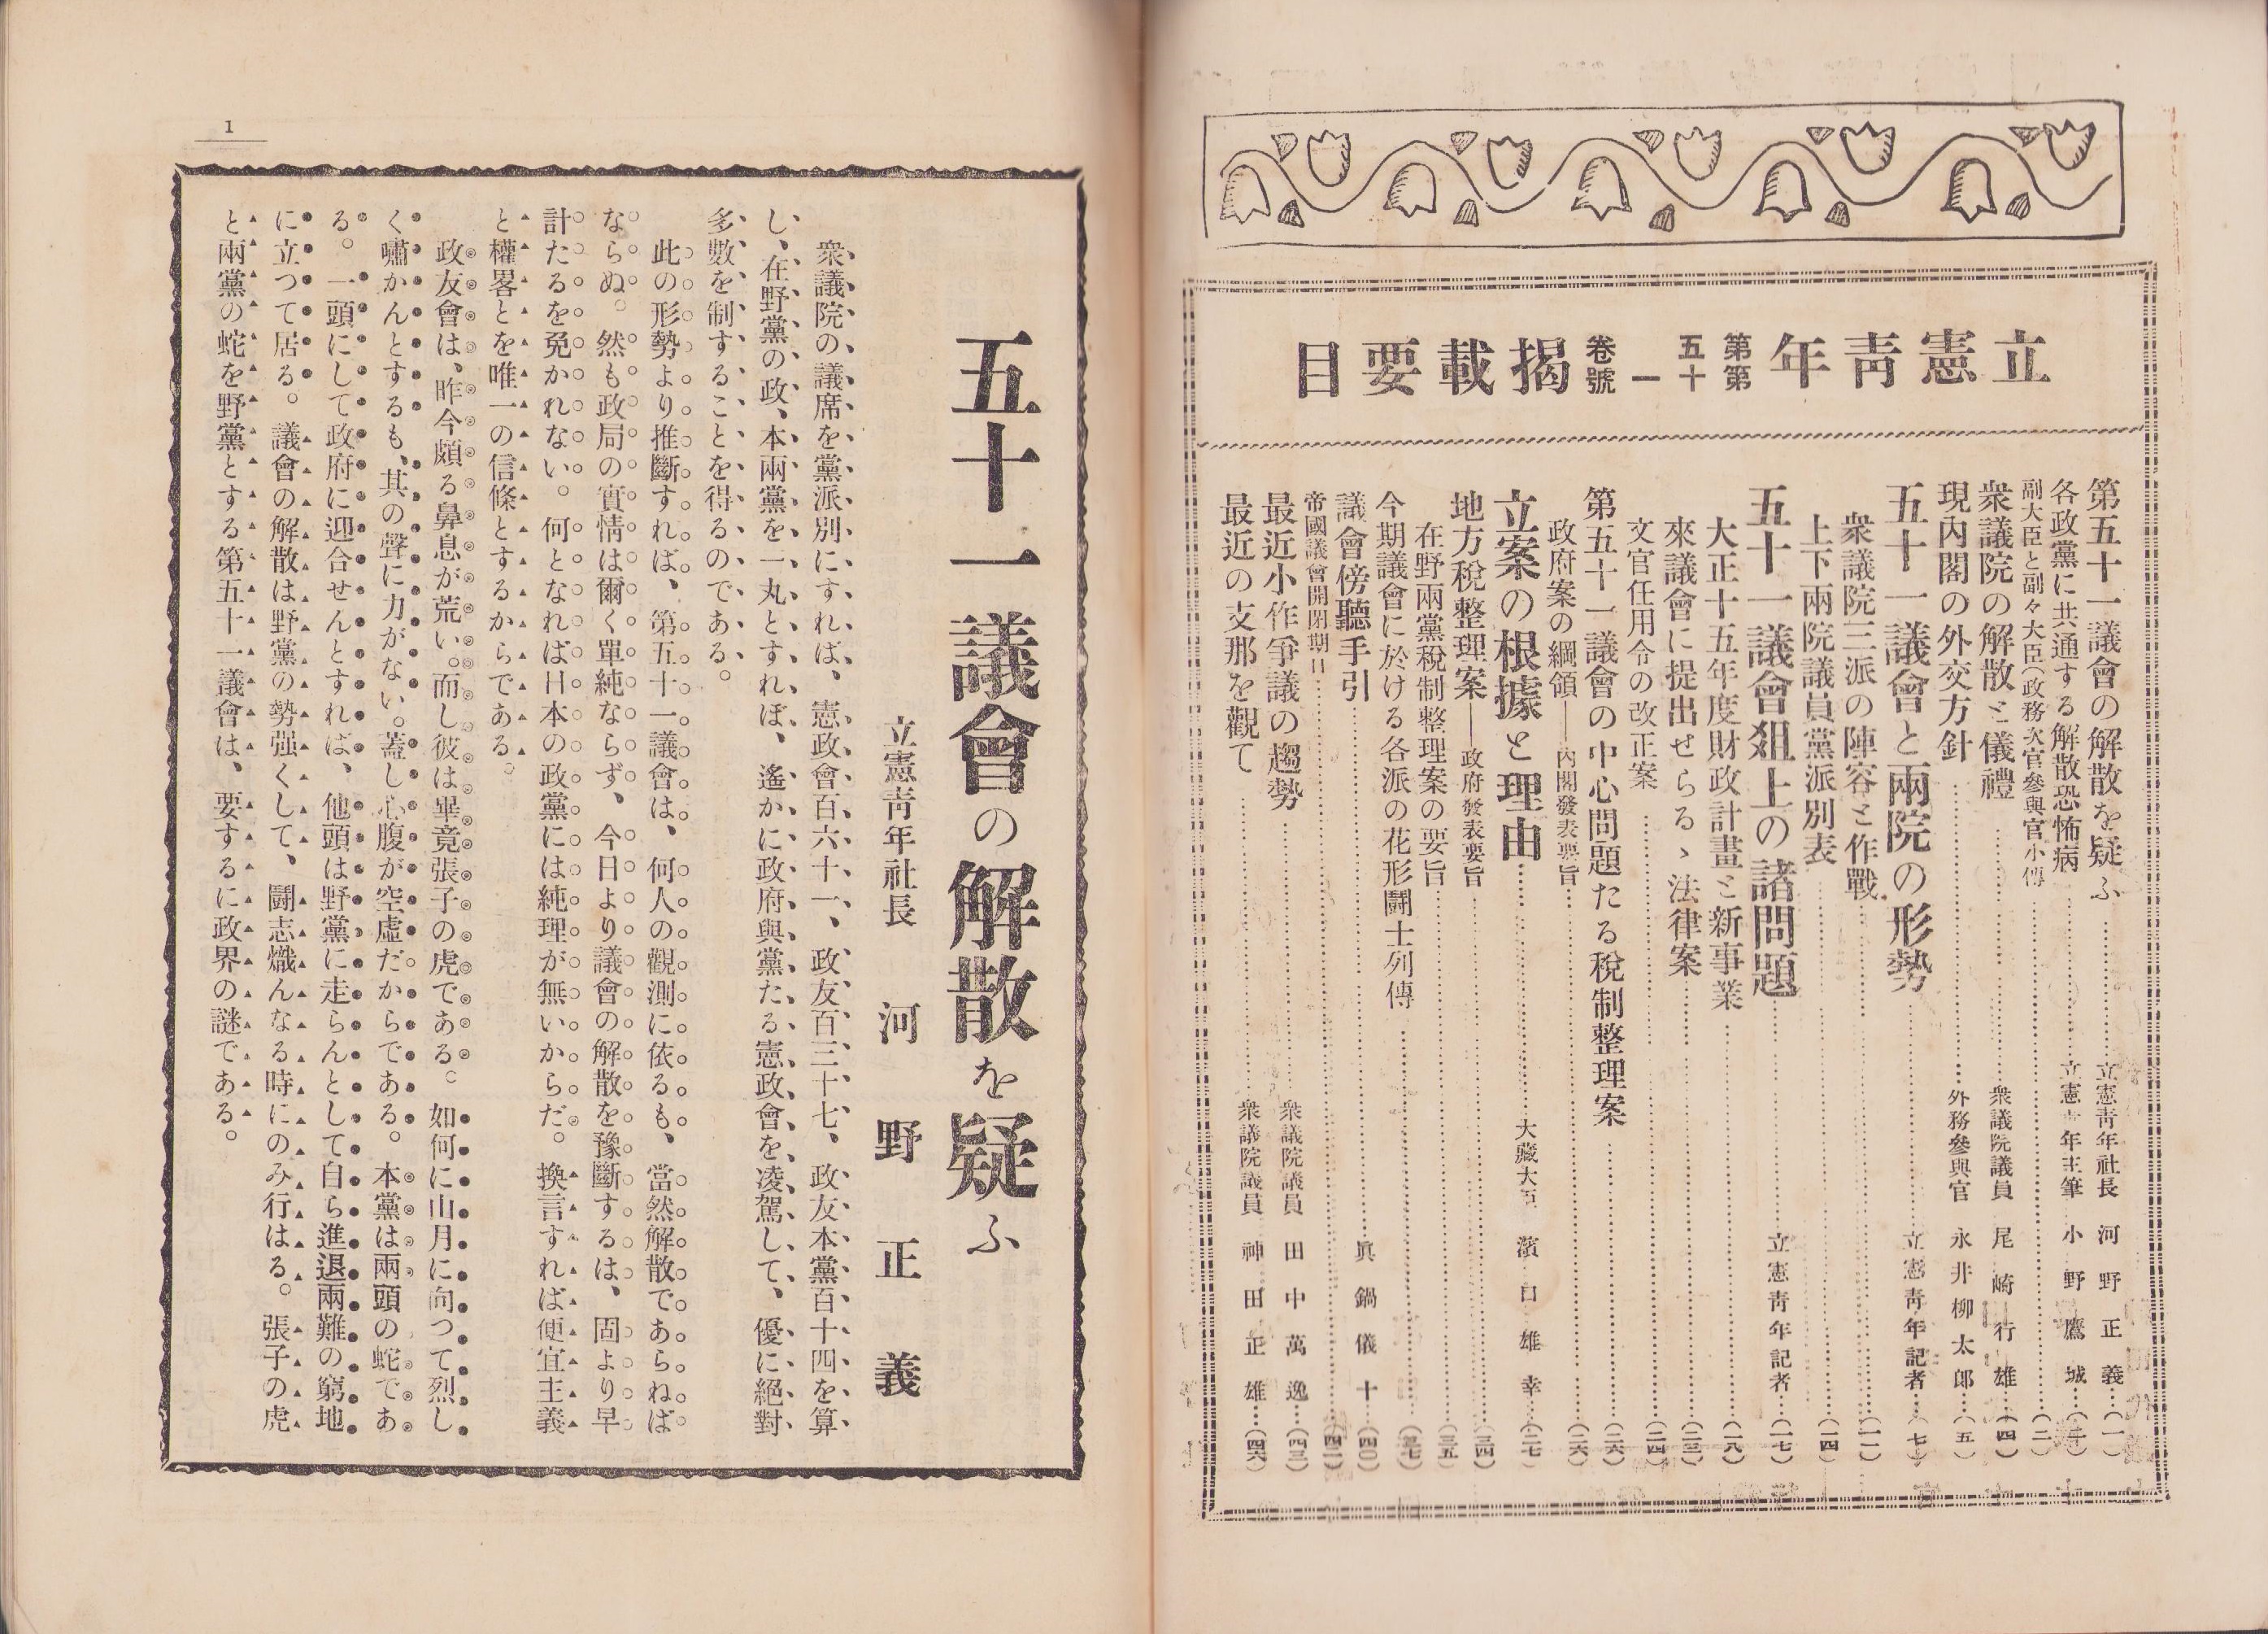 立憲靑年 第五卷 第十一號 揭載要目
第五十一議會の解散を疑ふ……立憲靑年社長 河野正義…(一)
各政黨に共通する解散恐怖病……立憲靑年主筆 小野鷹城…
副大臣と副々大臣(政務次官參與官小傳……(二)
衆議院の解散と儀禮……衆議院議員 尾崎行雄…(四)
現內閣の外交方針……外務參與官 永井柳太郞…(五)
五十一議會と兩院の形勢……立憲靑年記者…(七)
衆議院三派の陣容と作戰……(一一)
上下兩院議員黨派別表……(一四)
五十一議會爼上の諸問題……立憲靑年記者…(一七)
大正十五年度財政計畫と新事業……(一八)
來議會に提出せらるゝ法律案……(二三)
文官任用令の改正案……(二四)
第五十一議會の中心問題たる稅制整理案……(二六)
政府案の綱領──內閣發表要旨……(二六)
立案の根據と理由……大藏大臣 濱口雄幸…(二七)
地方稅整理案──政府發表要旨……(三四)
在野兩黨稅制整理案の要旨……(三五)
今期議會に於ける各派の花形鬪士列傳……(三七)
議會傍聽手引……眞鍋儀十…(四〇)
帝國議會開閉期日……(四二)
最近小作爭議の趨勢……衆議院議員 田中萬逸…(四三)
最近の支那を觀て……衆議院議員 神田正雄…(四六)
1
五十一議會の解散を疑ふ
立憲靑年社長 河野正義
衆議院の議席を黨派別にすれば、憲政會百六十一、政友百三十七、政友本黨百十四を算
し、在野黨の政、本兩黨を一丸とすれば、遙かに政府與黨たる憲政會を凌駕して、優に絕對
多數を制することを得るのである。
此の形勢より推斷すれば、第五十一議會は、何人の觀測に依るも、當然解散であらねば
ならぬ。然も政局の實情は爾く單純ならず、今日より議會の解散を豫斷するは、固より早
計たるを免かれない。何となれば日本の政黨には純理が無いからだ。換言すれば便宜主義
と權畧とを唯一の信條とするからである。
政友會は、昨今頗る鼻息が荒い。而し彼は畢竟張子の虎である。如何に山月に向つて烈し
く嘯かんとするも、其の聲に力がない。蓋し心腹が空虛だからである。本黨は兩頭の蛇であ
る。一頭にして政府に迎合せんとすれば、他頭は野黨に走らんとして自ら進退兩難の窮地
に立つて居る。議會の解散は野黨の勢强くして、鬪志熾んなる時にのみ行はる。張子の虎
と兩黨の蛇を野黨とする第五十一議會は、要するに政界の謎である。